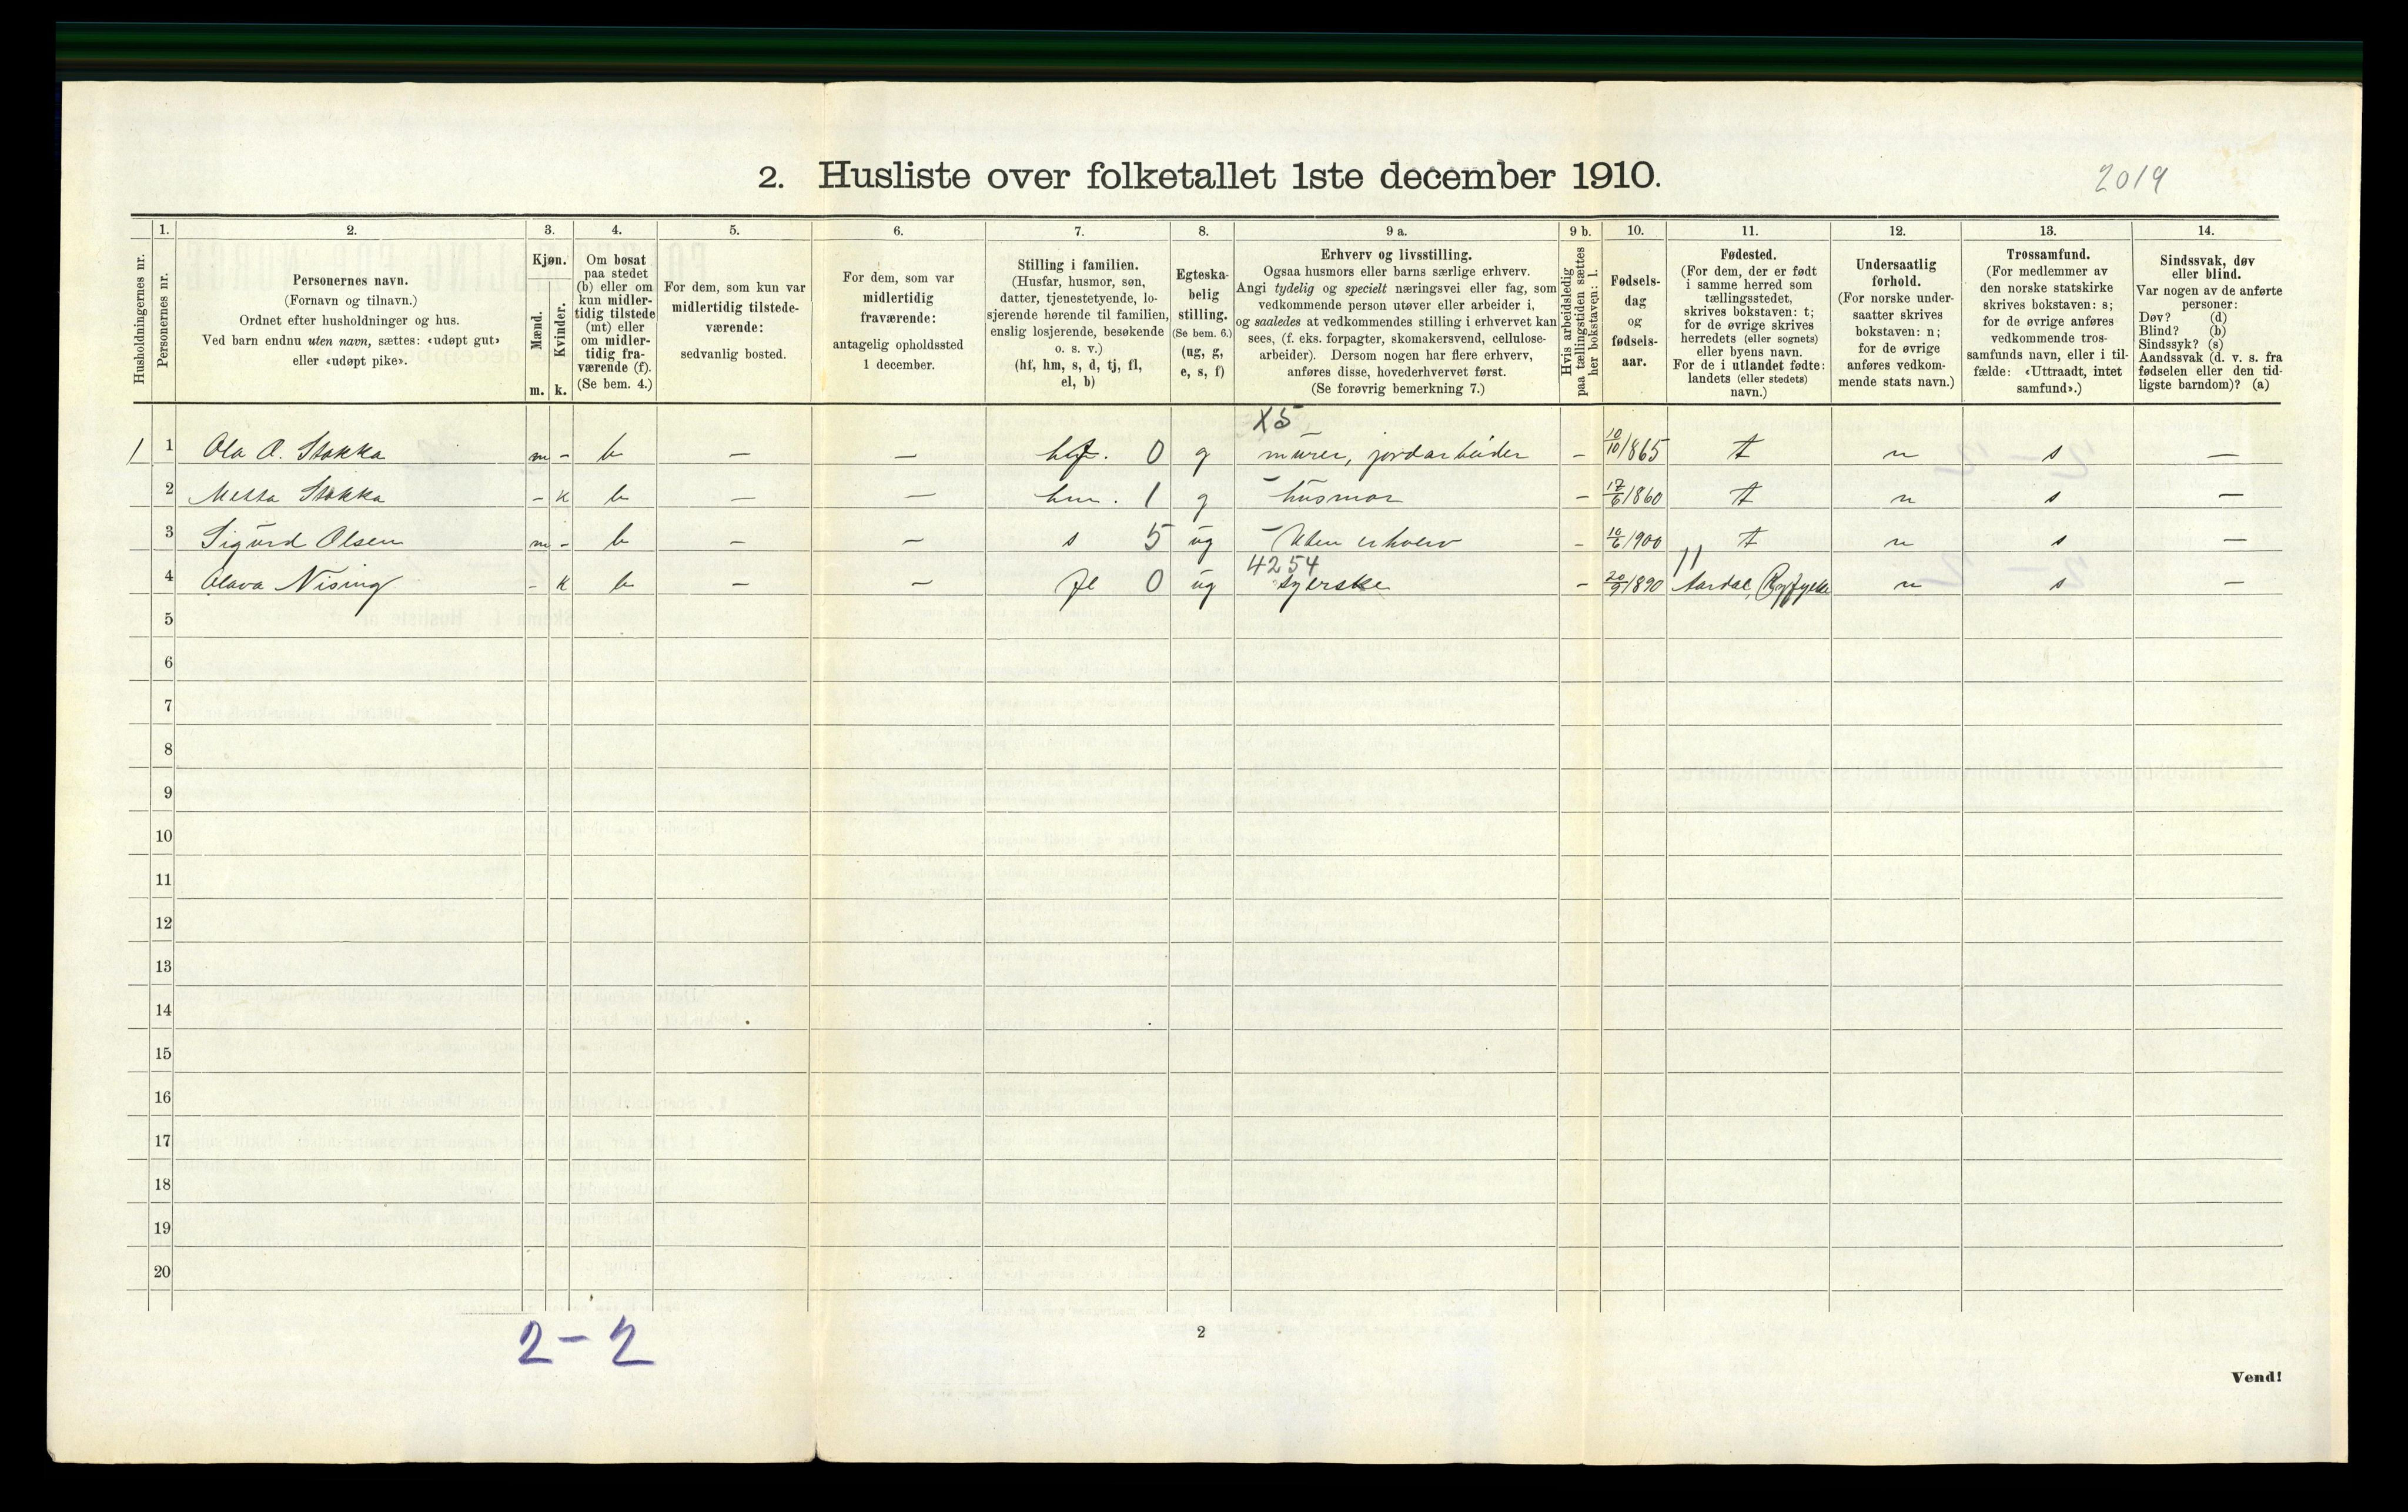 2. Husliste over folketallet 1ste december 1910.
2019
Husholdningernes nr.
1. Personernes nr.
2. Personernes navn.
(Fornavn og tilnavn.)
Ordnet efter husholdninger og hus.
Ved barn endnu uten navn, sættes: «udøpt gut»
eller «udøpt pike».
3. Kjøn.
Mænd. m.
Kvinder. k.
4. Om bosat
paa stedet
(b) eller om
kun midler-
tidig tilstede
(mt) eller
om midler-
tidig fra-
værende (f).
(Se bem. 4.)
5. For dem, som kun var
midlertidig tilstede-
værende:
sedvanlig bosted.
6. For dem, som var
midlertidig
fraværende:
antagelig opholdssted
1 december.
7. Stilling i familien.
(Husfar, husmor, søn,
datter, tjenestetyende, lo-
sjerende hørende til familien,
enslig losjerende, besøkende
o. s. v.)
(hf, hm, s, d, tj, fl,
el, b)
8. Egteska-
belig
stilling.
(Se bem. 6.)
(ug, g,
e, s, f)
9 a. Erhverv og livsstilling.
Ogsaa husmors eller barns særlige erhverv.
Angi tydelig og specielt næringsvei eller fag, som
vedkommende person utøver eller arbeider i,
og saaledes at vedkommendes stilling i erhvervet kan
sees, (f. eks. forpagter, skomakersvend, cellulose-
arbeider). Dersom nogen har flere erhverv,
anføres disse, hovederhvervet først.
(Se forøvrig bemerkning 7.)
9 b. Hvis arbeidsledig
paa tællingstiden sættes
her bokstaven: l.
10. Fødsels-
dag
og
fødsels-
aar.
11. Fødested.
(For dem, der er født
i samme herred som
tællingsstedet,
skrives bokstaven: t;
for de øvrige skrives
herredets (eller sognets)
eller byens navn.
For de i utlandet fødte:
landets (eller stedets)
navn.)
12. Undersaatlig
forhold.
(For norske under-
saatter skrives
bokstaven: n;
for de øvrige
anføres vedkom-
mende stats navn.)
13. Trossamfund.
(For medlemmer av
den norske statskirke
skrives bokstaven: s;
for de øvrige anføres
vedkommende tros-
samfunds navn, eller i til-
fælde: «Uttraadt, intet
samfund».)
14. Sindssvak, døv
eller blind.
Var nogen av de anførte
personer:
Døv? (d)
Blind? (b)
Sindssyk? (s)
Aandssvak (d. v. s. fra
fødselen eller den tid-
ligste barndom)? (a)
X5
1 1 Ola O. Stokka m - b - - hf. 0 g murer, jordarbeider - 10/10 1865 t n s -
2 Metta Stokka - k b - - hm. 1 g - husmor - 17/6 1860 t n s -
3 Sigurd Olsen m - b - - s 5 ug - Uten erhverv - 10/6 1900 t n s -
4254 11
4 Olava Nising - k b - - fl 0 ug syerske - 20/9 1890 Aardal, Ryfylke n s -
5
6
7
8
9
10
11
12
13
14
15
16
17
18
19
20
2 - 2
2
Vend!